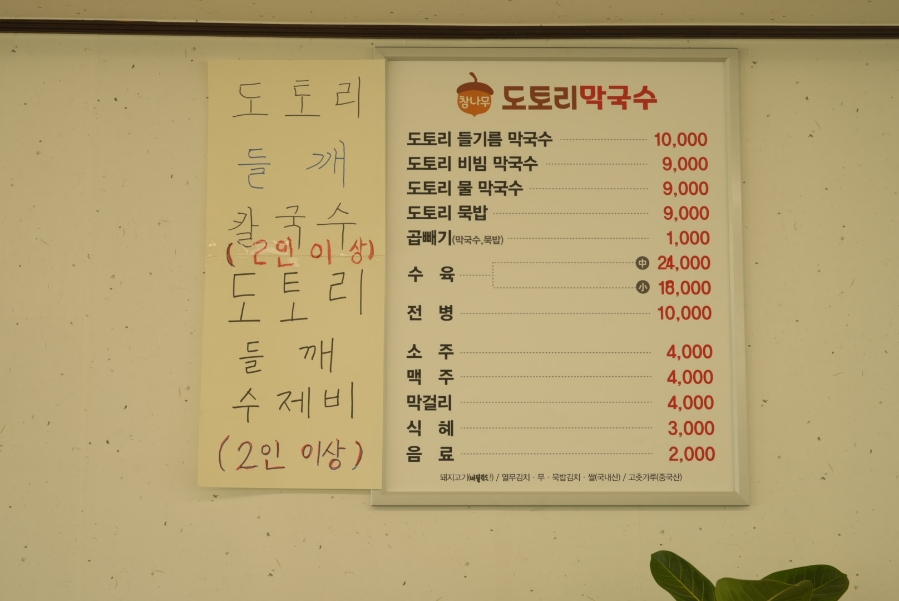 도토리
들깨
칼국수
(2인 이상)
도토리
들깨
수제비
(2인 이상)
참나무 도토리막국수
도토리 들기름 막국수 10,000
도토리 비빔 막국수 9,000
도토리 물 막국수 9,000
도토리 묵밥 9,000
곱빼기(막국수,묵밥) 1,000
수 육 中 24,000
小 18,000
전 병 10,000
소 주 4,000
맥 주 4,000
막걸리 4,000
식 혜 3,000
음 료 2,000
돼지고기 / 열무김치 · 무 · 묵밥김치 · 쌀(국내산) / 고춧가루(중국산)